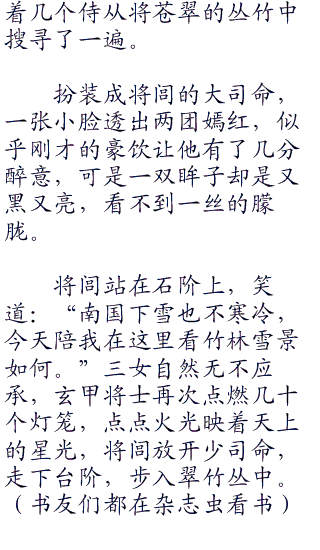 着几个侍从将苍翠的丛竹中
搜寻了一遍。
扮装成将闾的大司命，
一张小脸透出两团嫣红，似
乎刚才的豪饮让他有了几分
醉意，可是一双眸子却是又
黑又亮，看不到一丝的朦
胧。
将闾站在石阶上，笑
道：“南国下雪也不寒冷，
今天陪我在这里看竹林雪景
如何。”三女自然无不应
承，玄甲将士再次点燃几十
个灯笼，点点火光映着天上
的星光，将闾放开少司命，
走下台阶，步入翠竹丛中。
（书友们都在杂志虫看书）